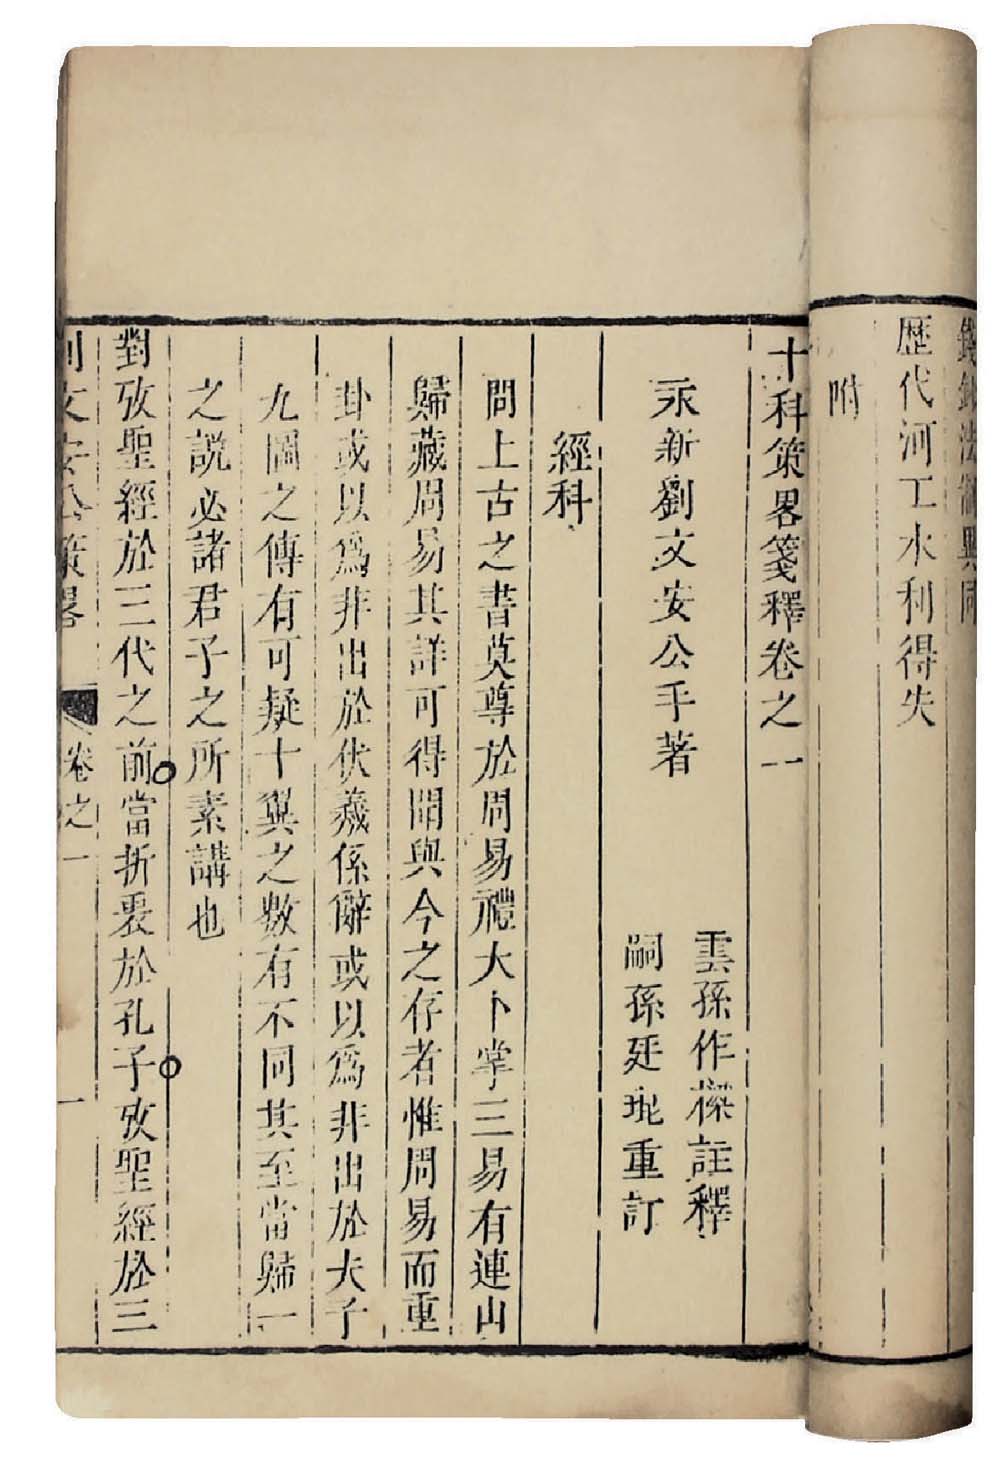 歷代河工水利得失
附
十科策畧箋釋卷之一
永新劉文安公手著
雲孫作樑註釋
嗣孫廷琨重訂
經科
問上古之書莫尊於周易禮大卜掌三易有連山
歸藏周易其詳可得聞與今之存者惟周易而重
卦或以為非出於伏羲係辭或以為非出於夫子
九圖之傳有可疑十翼之數有不同其至當歸一
之說必諸君子之所素講也
對攷聖經於三代之前當折衷於孔子攷聖經於三
文安公策畧 卷之一 一